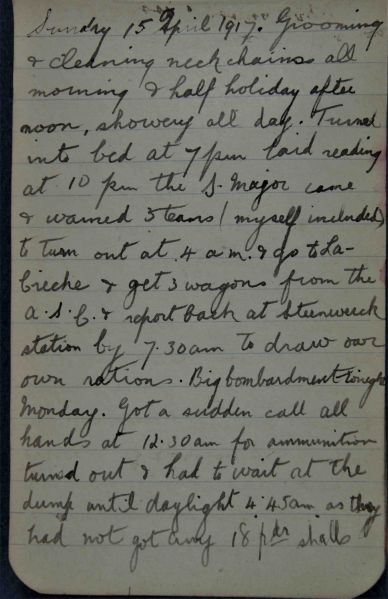 Sunday 15 April 1917. Grooming
& cleaning neckchains all
morning & half holiday after
noon, showery all day. Turned
into bed at 7 pm laid reading
at 10 pm the S. Major came
& warned 3 teams (myself included)
to turn out at 4 a m. & go to La-
creche & get 3 wagons from the
A.S.C. & report back at Steenwerck
station by 7.30am to draw our
own rations. Big bombardment tonight
Monday. Got a sudden call all
hands at 12.30am for ammunition
turned out & had to wait at the
dump until daylight 4.45am as they
had not got any 18 pdr shells